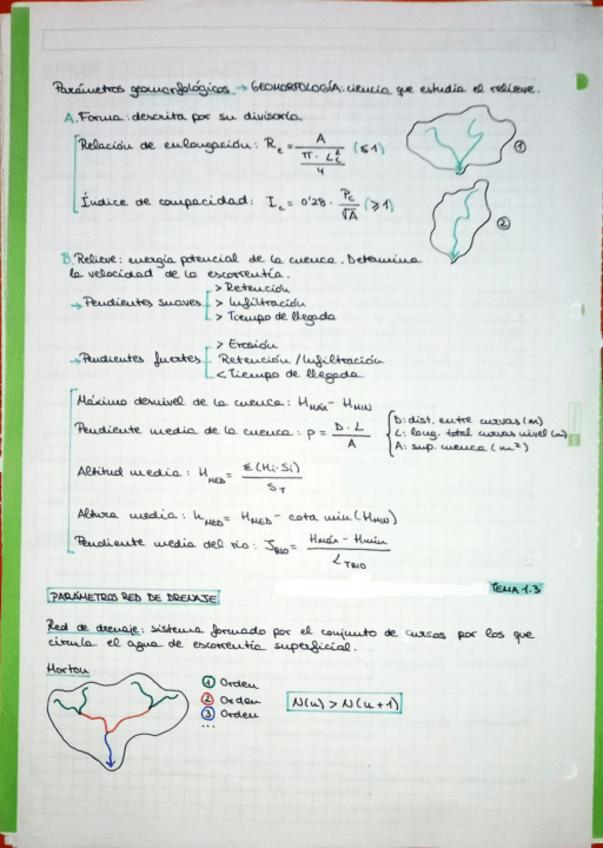 Parámetros geomorfológicos → GEOMORFOLOGÍA: ciencia que estudia el relieve.
A. Forma: descrita por su divisoria
Relación de enlongación: Re = A / (π · Lc² / 4) (≤ 1)
①
Índice de compacidad: Ic = 0'28 · Pc / √A (≥ 1)
②
B. Relieve: energía potencial de la cuenca. Determina
la velocidad de la escorrentía.
→ Pendientes suaves
> Retención
> Infiltración
> Tiempo de llegada
→ Pendientes fuertes
> Erosión
Retención / Infiltración
< Tiempo de llegada
Máximo desnivel de la cuenca: HMÁX - HMIN
Pendiente media de la cuenca: p = D · L / A
D: dist. entre curvas (m)
L: long. total curvas nivel (m)
A: sup. cuenca (m²)
Altitud media: HMED = Σ(Hi · Si) / ST
Altura media: hMED = HMED - cota min (HMIN)
Pendiente media del río: JRIO = Hmáx - Hmin / LTRIO
TEMA 1.3
PARÁMETROS RED DE DRENAJE
Red de drenaje: sistema formado por el conjunto de cursos por los que
circula el agua de escorrentía superficial.
Horton
① Orden
② Orden
③ Orden
...
N(u) > N(u+1)